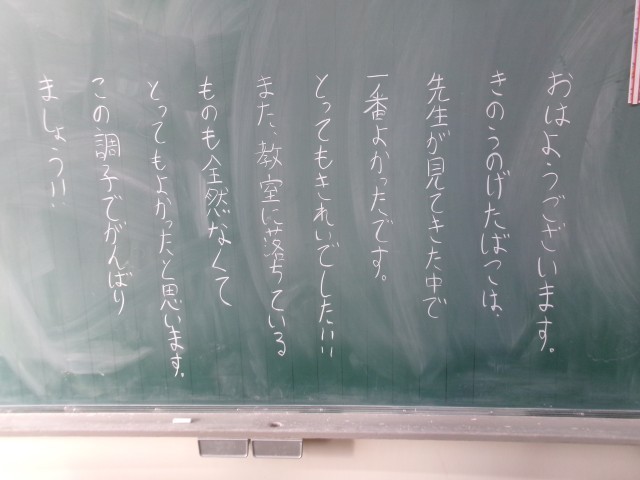 おはようございます。
きのうのげたばこは、
先生が見てきた中で
一番よかったです。
とってもきれいでした!!!
また、教室に落ちている
ものも全然なくて
とってもよかったと思います。
この調子でがんばり
ましょう!!